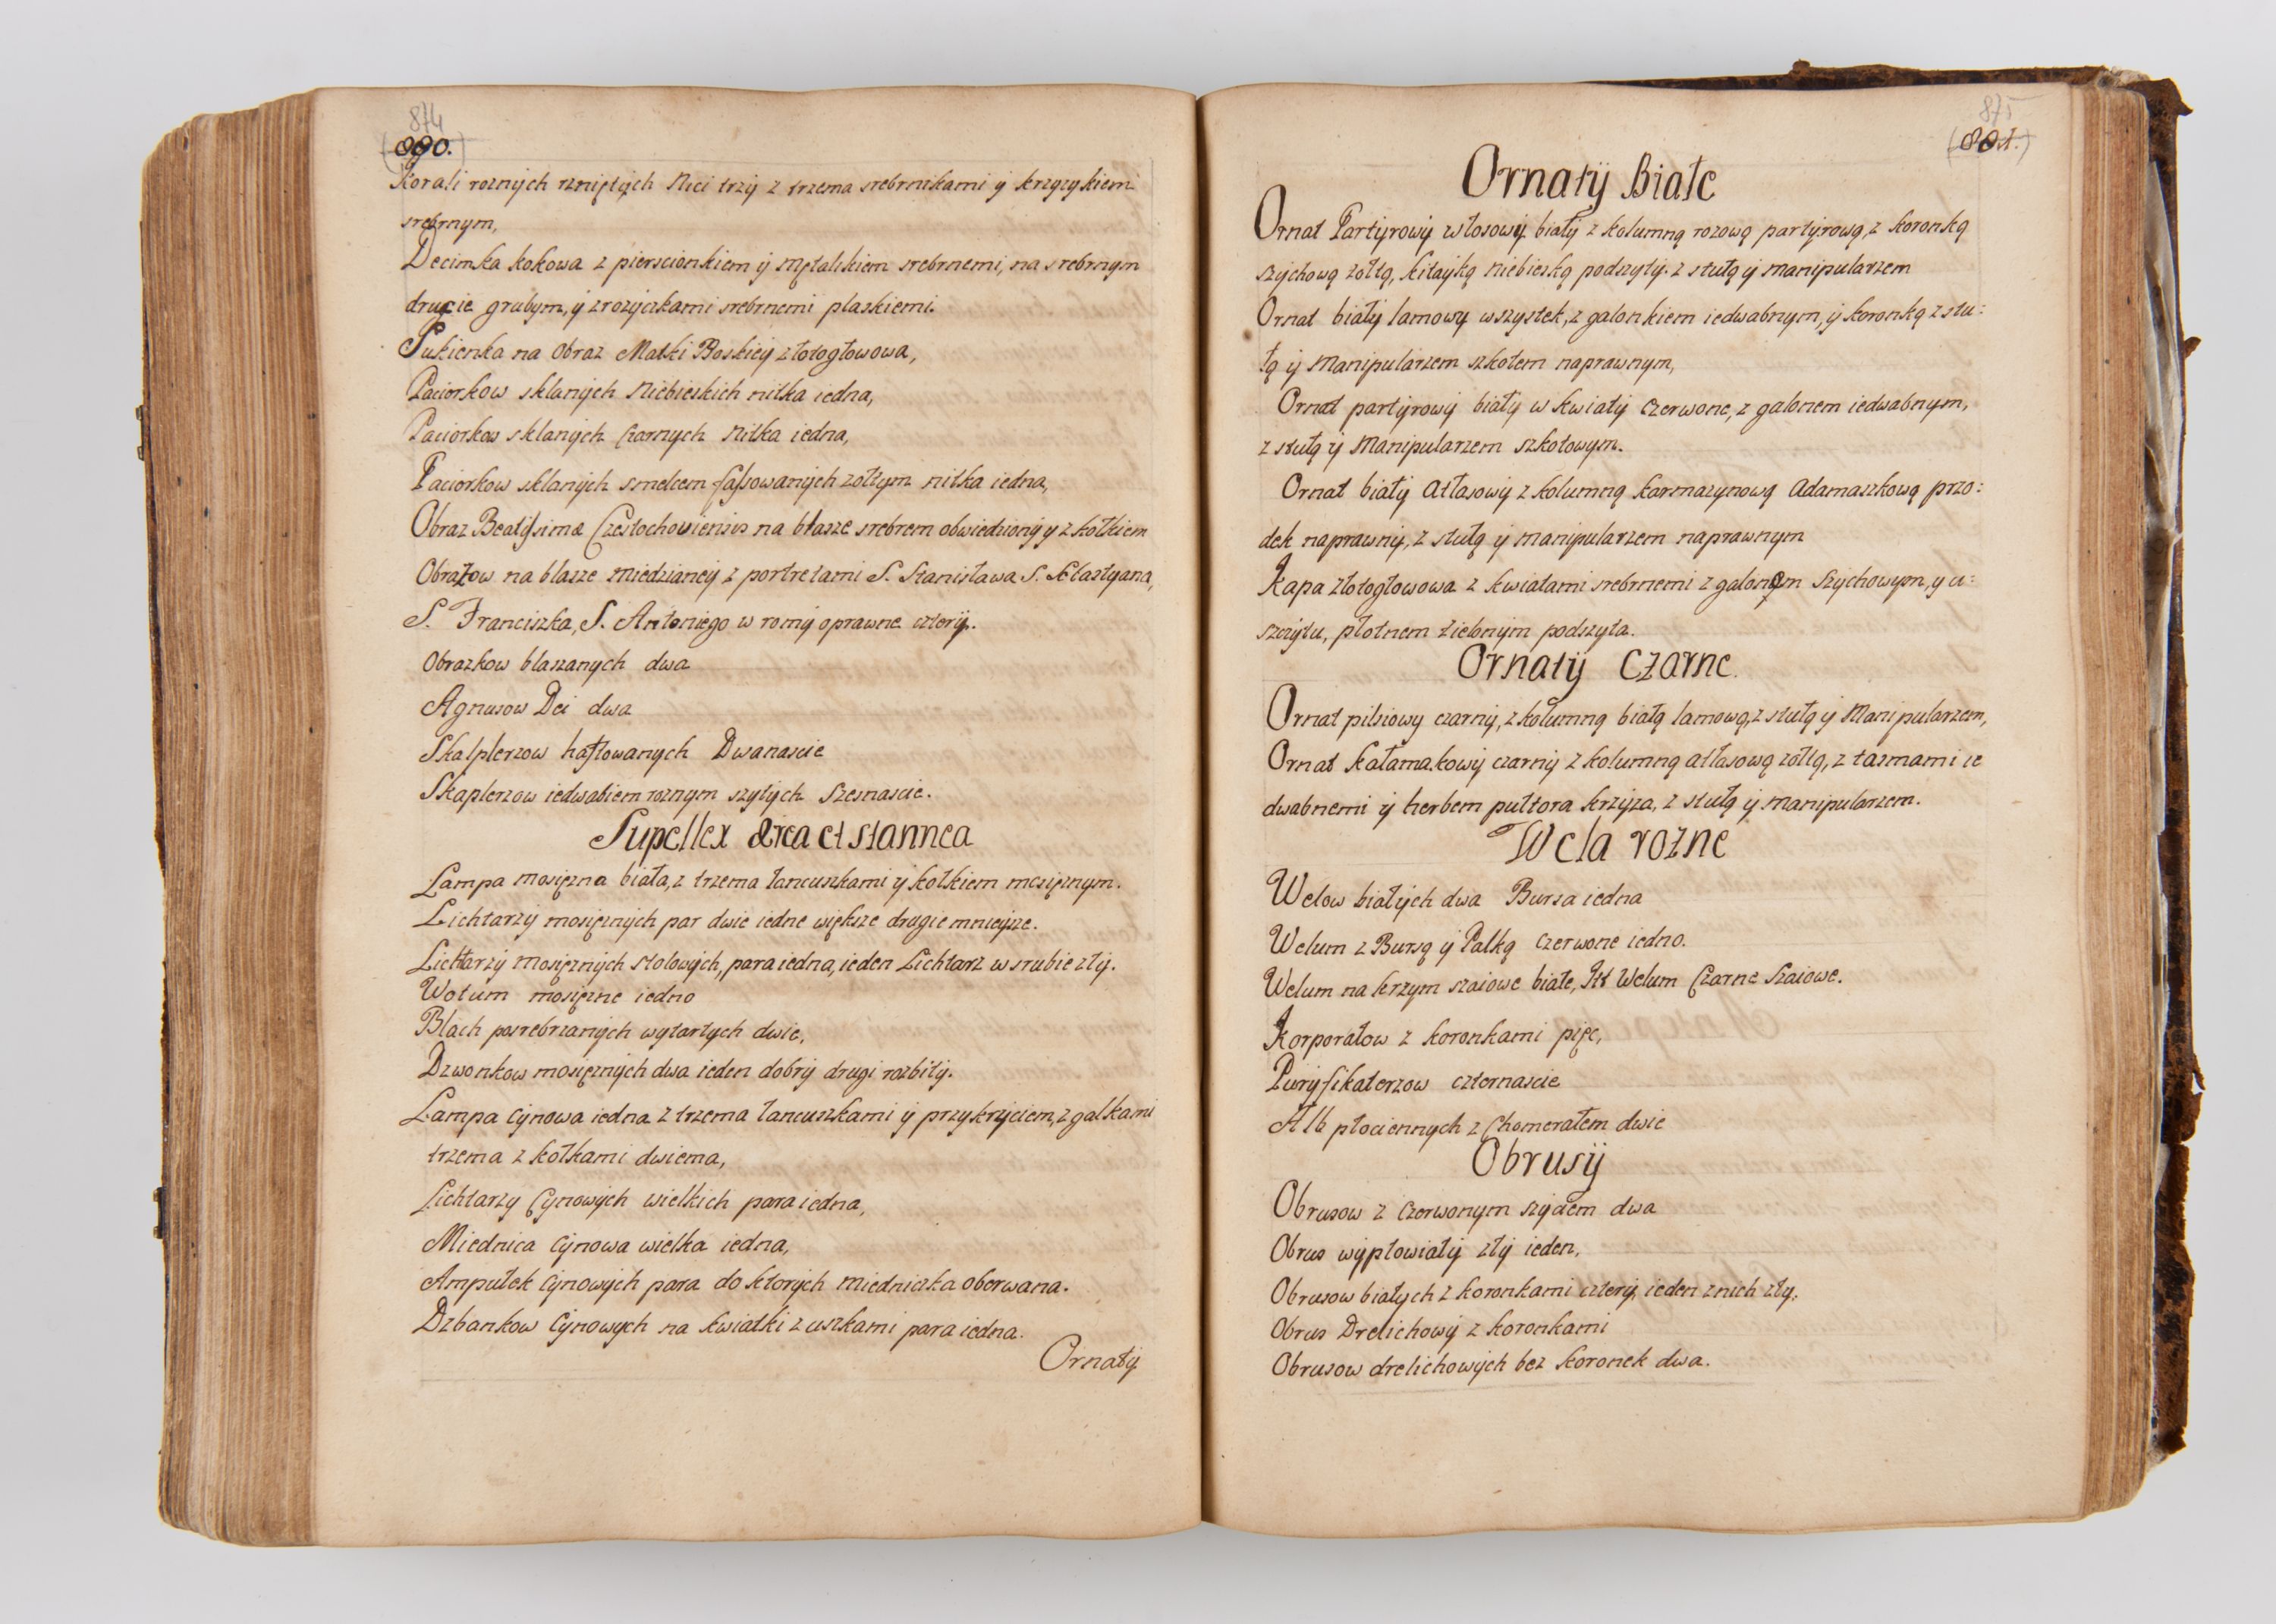 874
890.
Korali roznÿch rzniętÿch Nici trzÿ z trzema srebrnikami ÿ krzyzykiem
srebrnym,
Decimka kokowa z pierscionkiem ÿ mętalikiem srebrnemi, na srebrnym
drucie grubym, ÿ z rozÿczkami srebrnemi płaskiemi.
Sukienka na Obraz Matki Boskieÿ złotogłowowa,
Paciorkow sklanÿch Niebieskich nitka iedna,
Paciorkow sklanÿch Czarnych Nitka iedna,
Paciorkow sklanÿch smelcem fassowanÿch zołtym nitka iedna,
Obraz Beatissimæ Częstochoviensis na blasze srebrem obwiedzionÿ y z kołkiem
Obrazow na blasze miedzianeÿ z portretami S. Stanisława S. Sebastyana,
S. Franciszka, S. Antoniego w ramÿ oprawne czterÿ.
Obrazkow blaszanych dwa
Agnusow Dei dwa
Skalplerzow haftowanych Dwanascie
Skaplerzow iedwabiem roznym szytÿch szesnascie.
Supellex ærea et stannea
Lampa mosięzna biała, z trzema łancuszkami ÿ kołkiem mosięznym.
Lichtarzÿ mosięznÿch par dwie iedne większe drugie mnieÿsze.
Lichtarzÿ mosięznÿch stolowÿch, para iedna, ieden Lichtarz w srubie złÿ.
Wotum mosięzne iedno
Blach posrebrzanÿch wytartÿch dwie,
Dzwonkow mosięznÿch dwa ieden dobrÿ drugi rozbitÿ.
Lampa Cÿnowa iedna z trzema łancuszkami ÿ przykrÿciem, z gałkami
trzema z kołkami dwiema,
Lichtarzy Cynowÿch wielkich para iedna,
Miednica Cÿnowa wielka iedna,
Ampułek Cÿnowÿch para do ktorÿch miedniczka oberwana.
Dzbankow Cÿnowych na kwiatki z uszkami para iedna.
Ornatÿ
875
891.
Ornatÿ Białe
Ornat Partÿrowÿ włosowÿ białÿ z kolumną rozową partÿrową, z koronką
szÿchową zołtą, kitaÿką niebieską podszytÿ. z stułą ÿ manipularzem
Ornat białÿ lamowy wszystek, z galonkiem iedwabnym, ÿ koronką z stu:
łą ÿ Manipularzem szkotem naprawnym,
Ornat partÿrowÿ białÿ w kwiatÿ czerwone, z galonem iedwabnym,
z stułą ÿ Manipularzem szkotowym.
Ornat białÿ Atłasowÿ z kolumną karmazynową Adamaszkową przo:
dek naprawnÿ, z stułą ÿ manipularzem naprawnym
Kapa złotogłowowa z kwiatami srebrnemi z galonem szÿchowym, y u:
szczÿtu, płotnem zielonÿm podszyta.
Ornatÿ Czarne.
Ornat pilsiowy czarnÿ, z kolumną białą lamową, z stułą ÿ Manipularzem,
Ornat Kałamakowÿ czarnÿ z kolumną atłasową zółtą, z tasmami ie
dwabnemi ÿ herbem puttora krzÿza, z stułą ÿ manipularzem.
Wela rozne
Welow białÿch dwa Bursa iedna
Welum z Bursą ÿ Palką czerwone iedno.
Welum na krzym szaiowe białe, Welum Czarne szaiowe.
Korporałow z koronkami pięc,
Purÿfikaterzow czternascie
Alb płociennych z Chomerałem dwie
Obrusÿ
Obrusow z Czerwonym szÿciem dwa
Obrus wÿpłowiałÿ złÿ ieden,
Obrusow białych z koronkami czterÿ, ieden z nich złÿ.
Obrus Drelichowÿ z koronkami
Obrusow drelichowÿch bez koronek dwa.